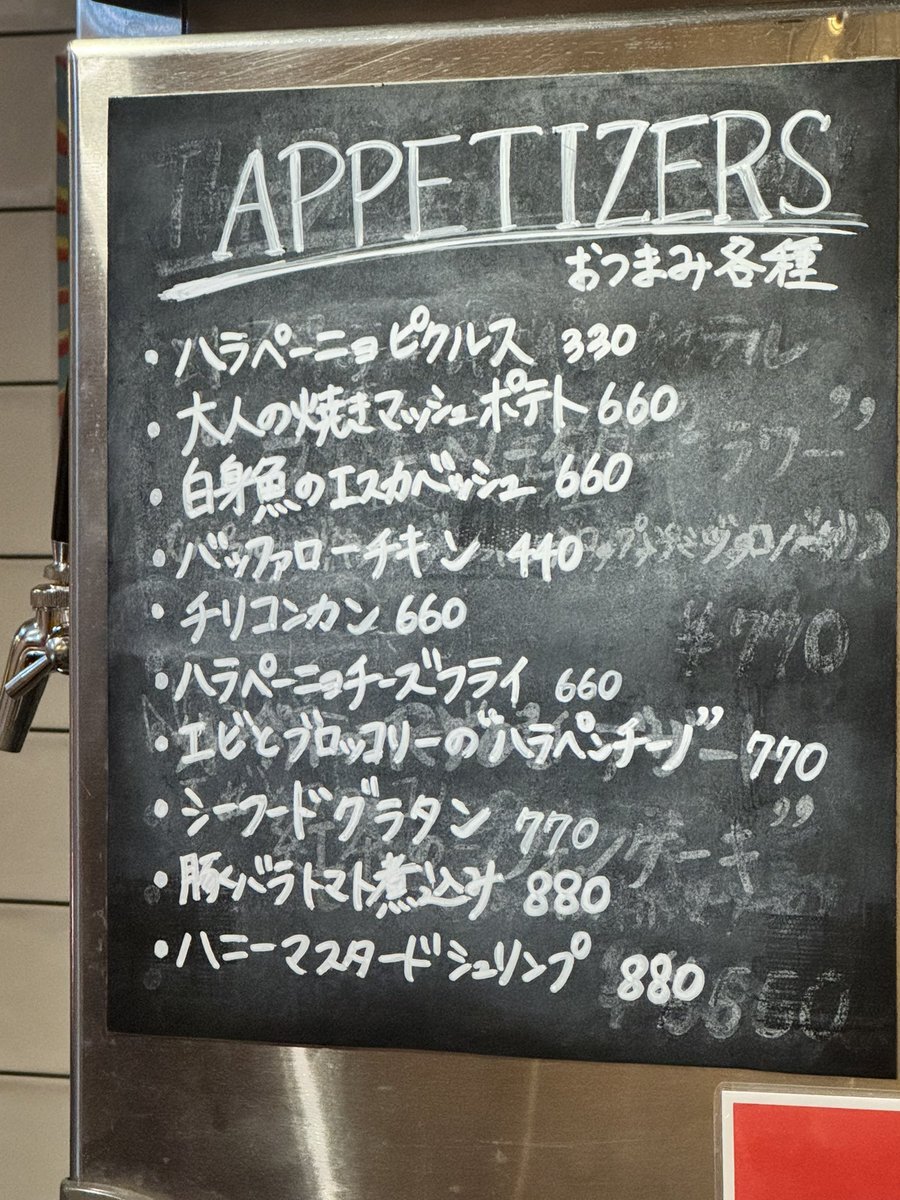 APPETIZERS
おつまみ各種
・ハラペーニョピクルス 330
・大人の焼きマッシュポテト 660
・白身魚のエスカベッシュ 660
・バッファローチキン 440
・チリコンカン 660
・ハラペーニョチーズフライ 660
・エビとブロッコリーの"ハラペンチーノ" 770
・シーフードグラタン 770
・豚バラトマト煮込み 880
・ハニーマスタードシュリンプ 880